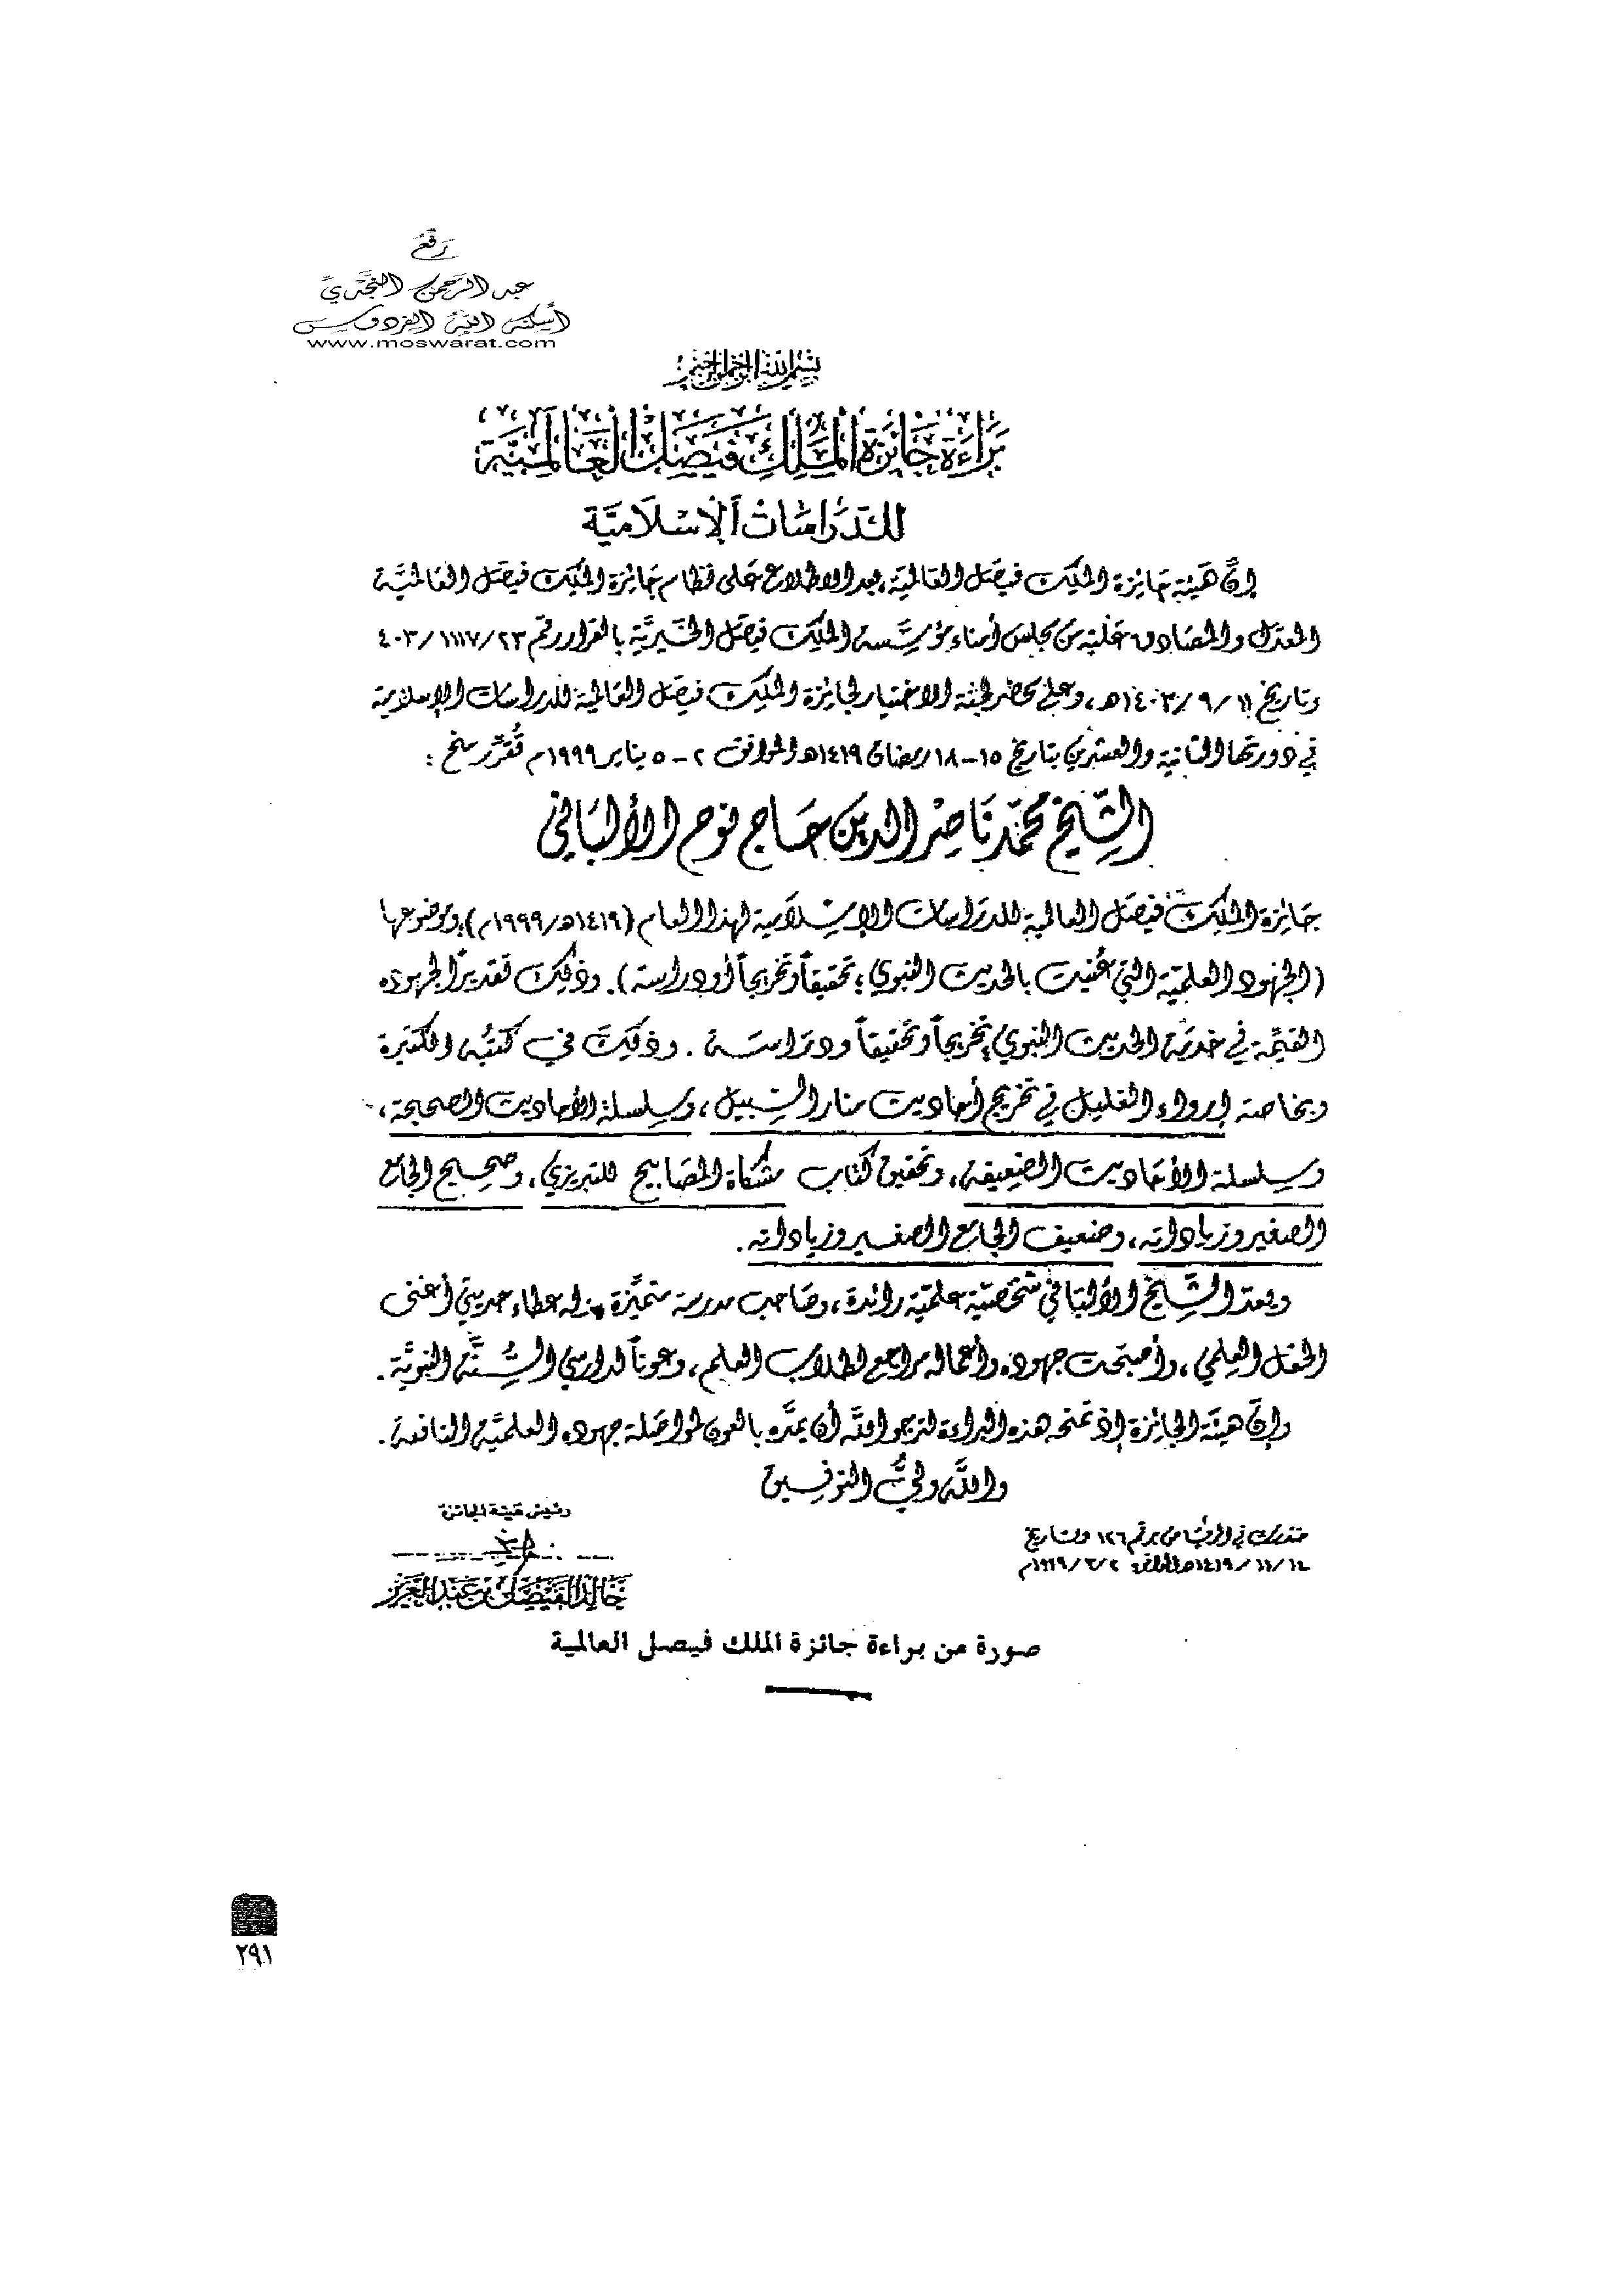 رفع
عبد الرحمن النجدي
أسكنه الله الفردوس
www.moswarat.com
بسم الله الرحمن الرحيم
براءة جائزة الملك فيصل العالمية
للدراسات الإسلامية
إن هيئة جائزة الملك فيصل العالمية، بعد الاطلاع على نظام جائزة الملك فيصل العالمية
المعدل والمصادق عليه من مجلس أمناء مؤسسة الملك فيصل الخيرية بالقرار رقم ٤٠٣/١١١٧/٢٣
وتاريخ ١٤٠٣/٩/١١هـ، وعلى محضر لجنة الاختيار لجائزة الملك فيصل العالمية للدراسات الإسلامية
في دورتها الثانية والعشرين بتاريخ ١٥-١٨ رمضان ١٤١٩هـ الموافق ٢-٥ يناير ١٩٩٩م تقرر منح:
الشيخ محمد ناصر الدين حاج نوح الألباني
جائزة الملك فيصل العالمية للدراسات الإسلامية لهذا العام (١٤١٩هـ/١٩٩٩م)؛ وموضوعها
(الجهود العلمية التي عُنيت بالحديث النبوي؛ تحقيقاً وتخريجاً أو دراسة). وذلك تقديراً لجهوده
القيمة في خدمة الحديث النبوي؛ تخريجاً وتحقيقاً ودراسة. وذلك في كتبه الكثيرة
وبخاصة إرواء الغليل في تخريج أحاديث منار السبيل، وسلسلة الأحاديث الصحيحة،
وسلسلة الأحاديث الضعيفة، وتحقيق كتاب مشكاة المصابيح للتبريزي، وصحيح الجامع
الصغير وزياداته، وضعيف الجامع الصغير وزياداته.
ويعد الشيخ الألباني شخصية علمية رائدة، وصاحب مدرسة متميزة، له عطاء حديثي أغنى
الحقل العلمي، وأصبحت جهوده وأعماله مراجع لطلاب العلم، وعوناً لدارسي السُّنَّة النبوية.
وإن هيئة الجائزة إذ تمنحه هذه البراءة لترجو الله أن يمدّه بالعون لمواصلة جهوده العلمية النافعة.
والله وليُّ التوفيق
رئيس هيئة الجائزة
صدرت في الرياض برقم ١٢٦ وتاريخ
١٤١٩/١١/١٤هـ الموافق ١٩٩٩/٣/٢م
خالد الفيصل بن عبد العزيز
صورة عن براءة جائزة الملك فيصل العالمية
٢٩١